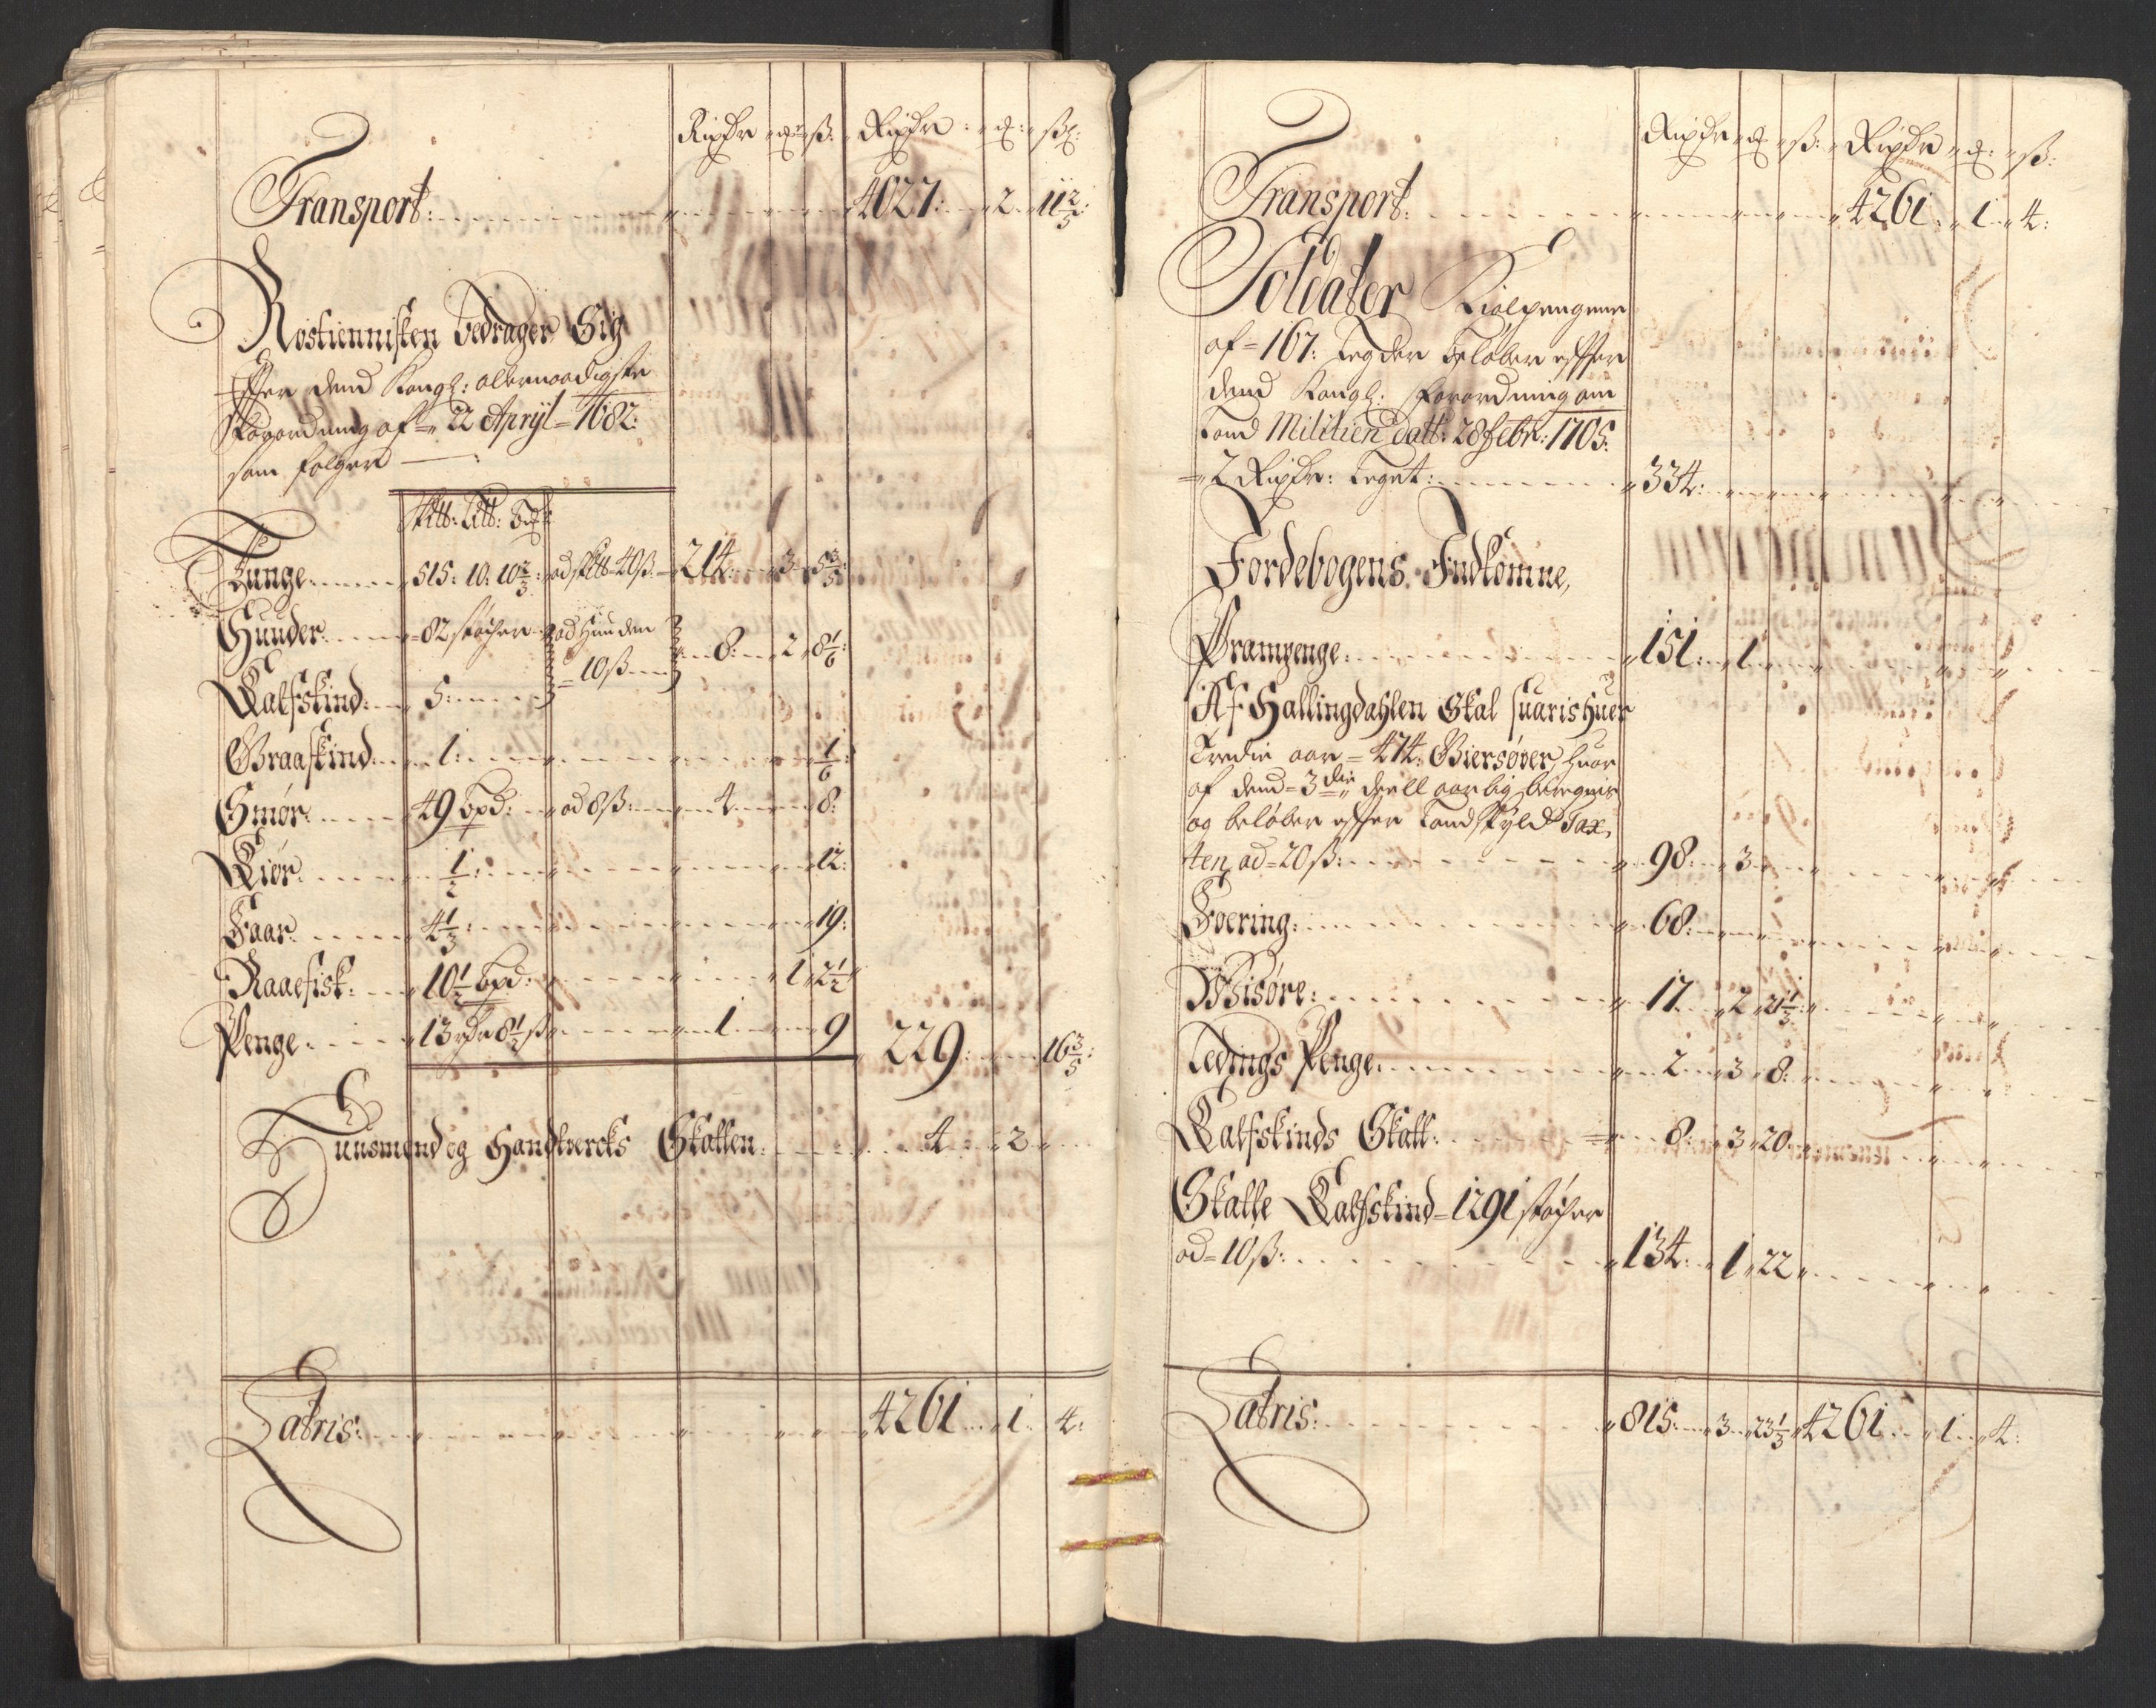 Rixdr q ß: Rixdr q: ß:
Transport: 4027: 2 11 2/5
Rostiennisten bedrager Sig
Effter dend Kongl: allernaadigste
Forordning af 22 Apryl 1682:
som følger
Sktt: Ltt: Bxß
Tunge 515: 10: 10 2/3: ad sktt 40ß: 214: 3 5 3/5:
Huuder 82 støcher ad Huuden
10ß 8: 2 8 1/6:
Kalfskind: 5:
Graaskind 1: 1/6:
Smør 49 bpd: ad 8ß: 4 8:
Kiør 1/2: 12:
Faar: 4 1/3: 19:
Raaefisk: 10 1/2 bpd: 1 2 1/2
Penge 13 rdr 8 1/2 ß 1 9 229: 16 3/5:
Huusmend og Handtvercks Skatten: 4: 2
Latris: 4261 1 4:
Rixdr q ß: Rixdr q: ß:
Transport: 4261 1 4:
Soldater Kiolpengene
af 167: Legder beløber effter
dend Kongl: Forordning om
Land Militien datt: 28 Febr: 1705:
2 Rixdr: Leget: 334:
Jordebogens Indkomne,
Prampenge 151: 1
Af Hallingdahlen Skal suaris huer
Tredie aar 474: Giersøer, huor
af dend 3die deell aarlig beregnis
og beløber effter Landskyld Tax,
ten ad 20ß: 98: 3
Foering: 68:
Wisøre: 17 2 21 1/3:
Ledings Penge 2 3 8:
Kalfskinds Skatt: 8: 3 20
Skatte Kalfskind 1291 støcher
ad 10ß: 134 1 22
Latris: 815: 3 23 1/3 4261 1 4: